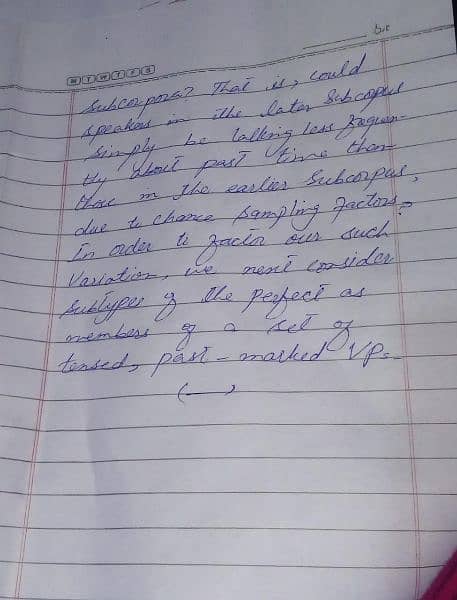 M T W T F S
Subcorpora? That is, could
speakers in the later Subcorpus
simply be talking less frequen-
tly about past time than
those in the earlier Subcorpus,
due to chance sampling factors?
In order to factor out such
Variation, we next consider
Subtypes of the perfect as
members of a set of
tensed, past-marked VPs.